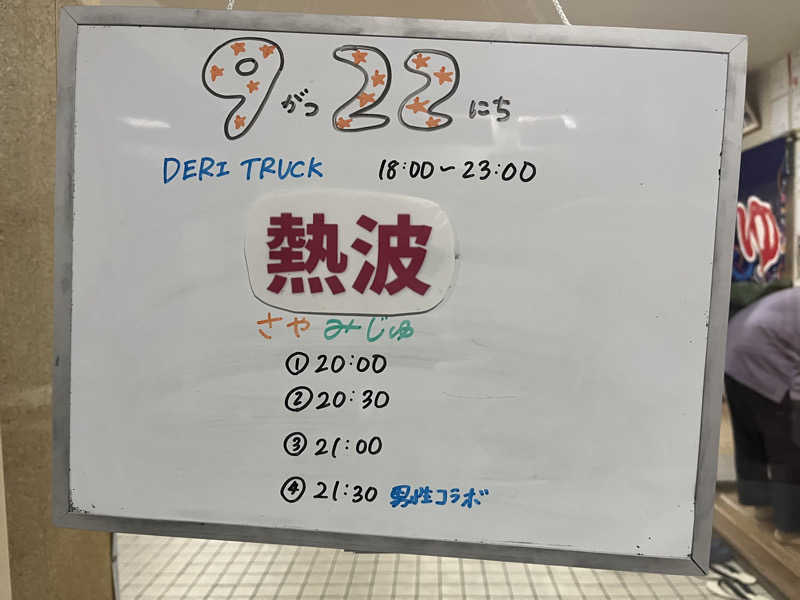 9がつ22にち
DERI TRUCK 18:00~23:00
熱波
さや みじゅ
①20:00
②20:30
③21:00
④21:30 男性コラボ
ゆ